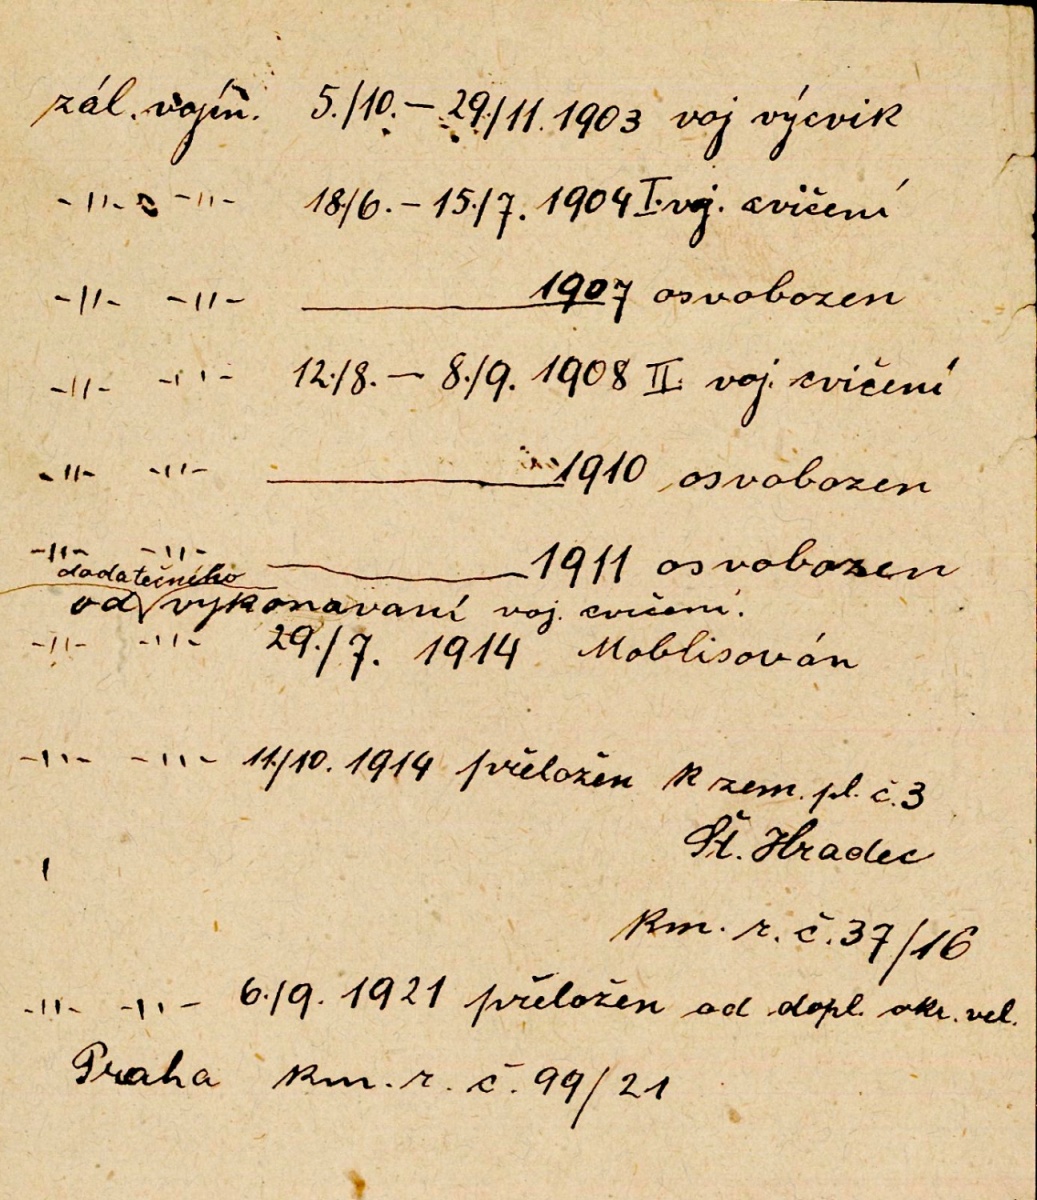 zál. vojín. 5./10. – 29./11. 1903 voj výcvik
-"- -"- 18./6. – 15./7. 1904 I. voj. cvičení
-"- -"- 1907 osvobozen
-"- -"- 12./8. – 8./9. 1908 II. voj. cvičení
-"- -"- 1910 osvobozen
-"- -"- 1911 osvobozen
dodatečného
od vykonavaní voj. cvičení.
-"- -"- 29./7. 1914 Moblisován
-"- -"- 11./10. 1914 přeložen k zem. pl. č. 3
Hradec
km. r. č. 37/16
-"- -"- 6./9. 1921 přeložen od dopl. okr. vel.
Praha km. r. č. 99/21